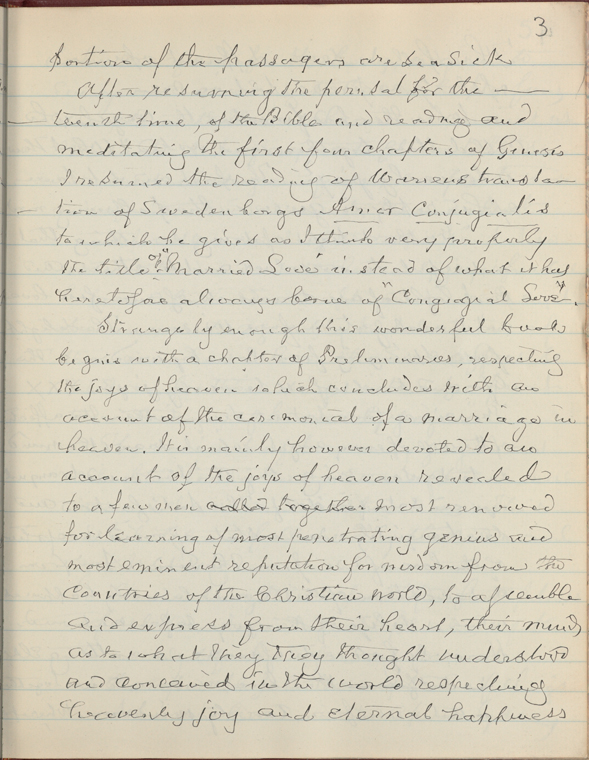 3
portion of the passagers are sea sick
After resuming the perusal for the ——
twenth time, of the Bible and reading and
meditating the first four chapters of Genesis
I resumed the reading of Warrens transla–
tion of Swedenborgs Amor Conjugialis
to which he gives as I think very properly
the title of "Married Love" instead of what it has
heretofore always borne of "Conjugial Love".
Strangely enough this wonderful book
begins with a chapter of Preliminaries, respecting
the joys of heaven which concludes with an
account of the ceremonial of a marriage in
heaven. It is mainly however devoted to an
account of the joys of heaven revealed
to a few men called together most renowed
for learning of most penetrating genius and
most eminent reputation for wisdom from the
Countries of the Christian world, to assemble
and express from their heart, their minds
as to what they they thought understood
and conceived in the world respecting
heavenly joy and eternal happiness